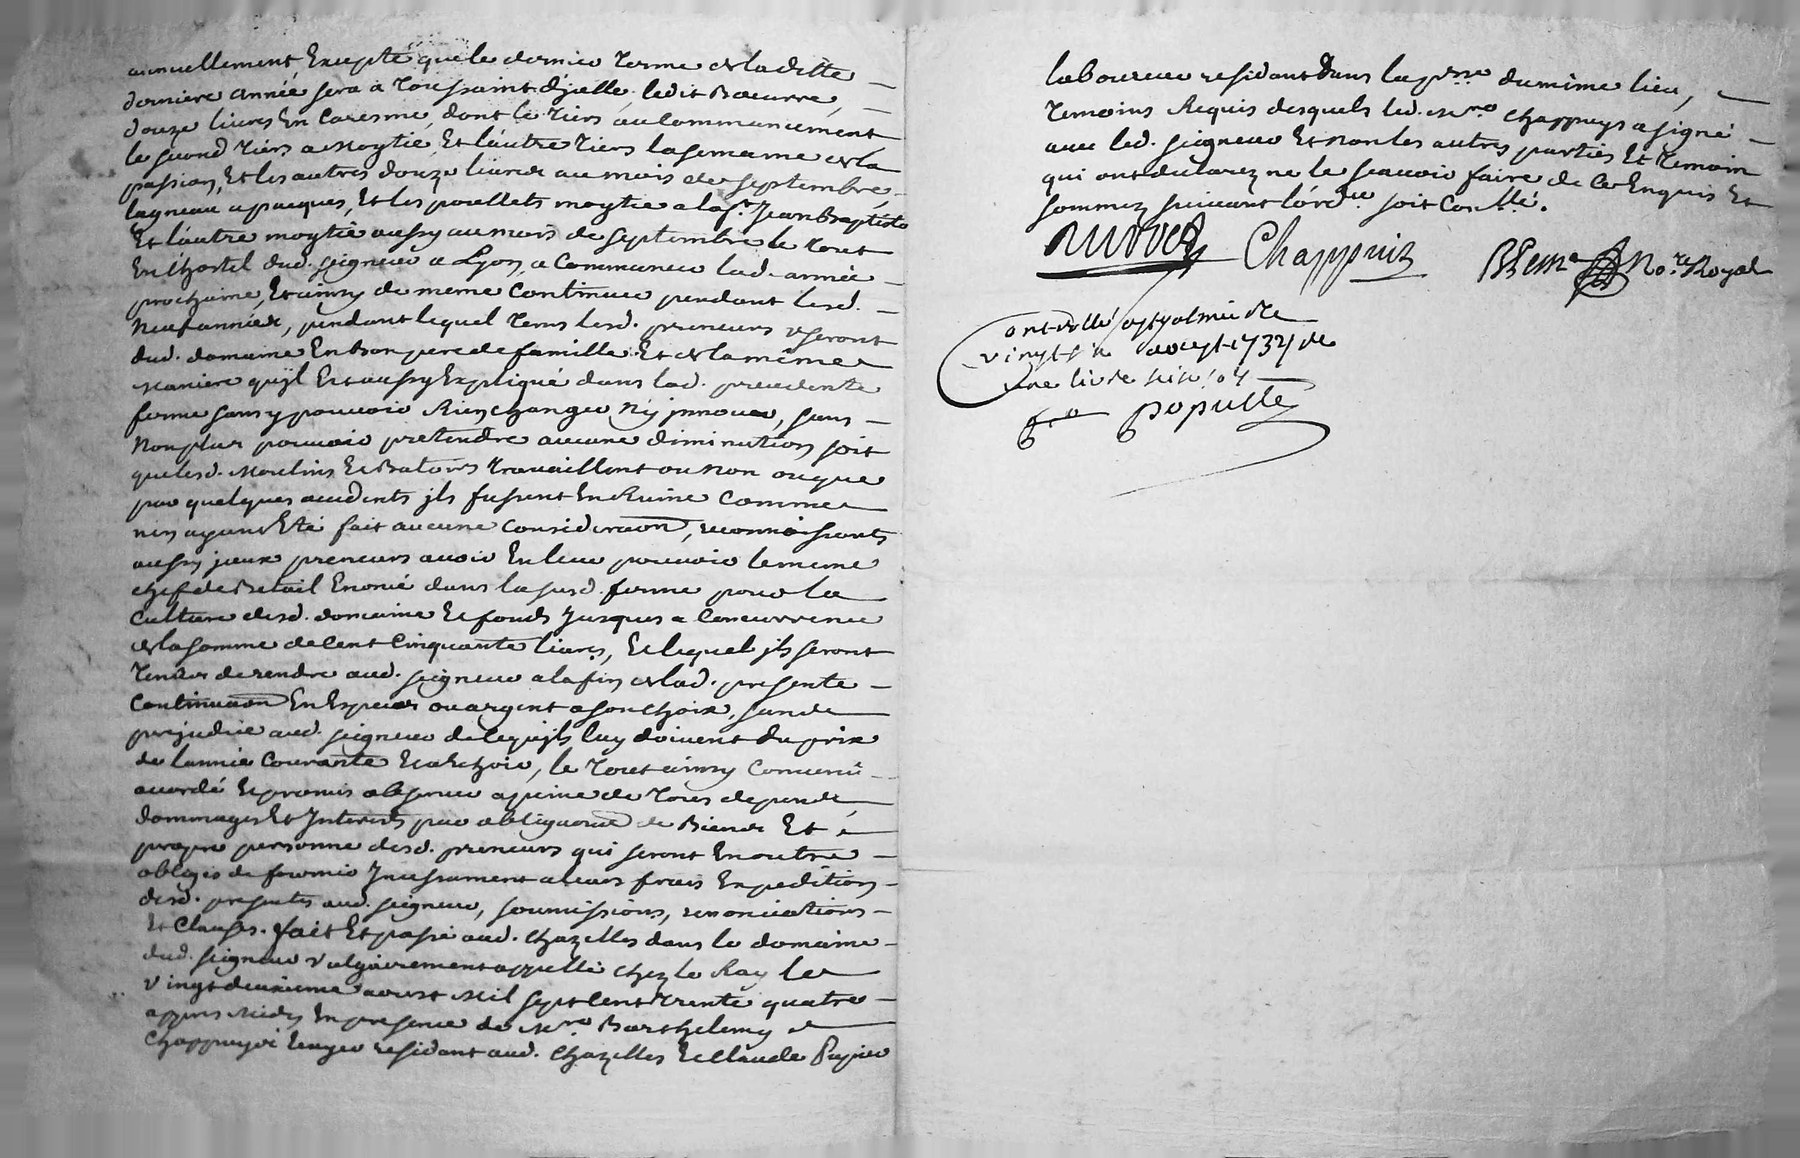 annuellement Excepté que le dernier Terme de laditte
derniere année sera à Toussaint d'jcelle. ledit Beurre,
douze livres En Caresme, dont le Tiers au Commancement
le second Tiers a Moytié, Et l'autre Tiers la semaine de la
passion, Et les autres douze livres au mois de septembre,
lagneau a pacques, Et les poullets moytié a la St. Jean Baptiste
Et l'autre moytié aussy au mois de septembre le Tout
En l'hostel dud. seigneur a Lyon, a Commancer lad. année
prochaine, Et ainsy de meme Continuer pendant lesd.
Neuf années, pendant lequel Tems lesd. preneurs useront
dud. domaine En bon pere de famille Et de la même
Maniere qu'jl Est aussy Expliqué dans lad. precedente
ferme sans y pouvoir Rien changer Ny jnnover, sans
Non plus pouvoir pretendre aucune diminution soit
que lesd. Moulins Et Batoirs Travaillent ou Non ou que
par quelques accidents jls fussent En Ruine Comme
n'en ayant Eté fait aucune Consideraon, reconnoissants
aussy jceux preneurs avoir En leur pouvoir le meme
chef de Betail Enoncé dans la susd. ferme pour la
Culture desd. domaine Et fonds Jusques a Concurrence
de la somme de Cent Cinquante livres, Et lequel jls seront
Tenus de rendre aud. seigneur a la fin de lad. presente
Continuaon En Especes ou argent a son choix, sans
prejudice aud. seigneur de ce qu'jls luy doivent du prix
de l'année Courante Et a Echoir, le Tout ainsy Convenu
accordé Et promis observer a peine de Tous depends
dommages Et Interests par obligaon de Biens Et
propre personne desd. preneurs qui seront En outre
obligés de fournir Jncessament a leurs frais Expedition
desd. presentes aud. seigneur, soumissions, renonciations
Et Clauses. fait Et passé aud. Chazelles dans le domaine
dud. seigneur vulgairement appellé chez le Ray le
vingt deuxieme aoust Mil sept Cent Trente quatre
apprès Midy En presence de Mre. Barthelemy
Chappuys residant aud. Chazelles Et Claude Pupier
laboureur residant dans la psse. du même lieu,
Temoins Requis desquels led. Mre. Chappuys a signé
avec led. seigneur Et Non les autres parties Et Temoin
qui ont declarez ne le sçavoir faire de Ce Enquis Et
sommez suivant l'ordce soit Conllé.
Chappuis
No.re Royal
Controllé a st galmier le
vingt six aoust 1734 de
une livre seise s